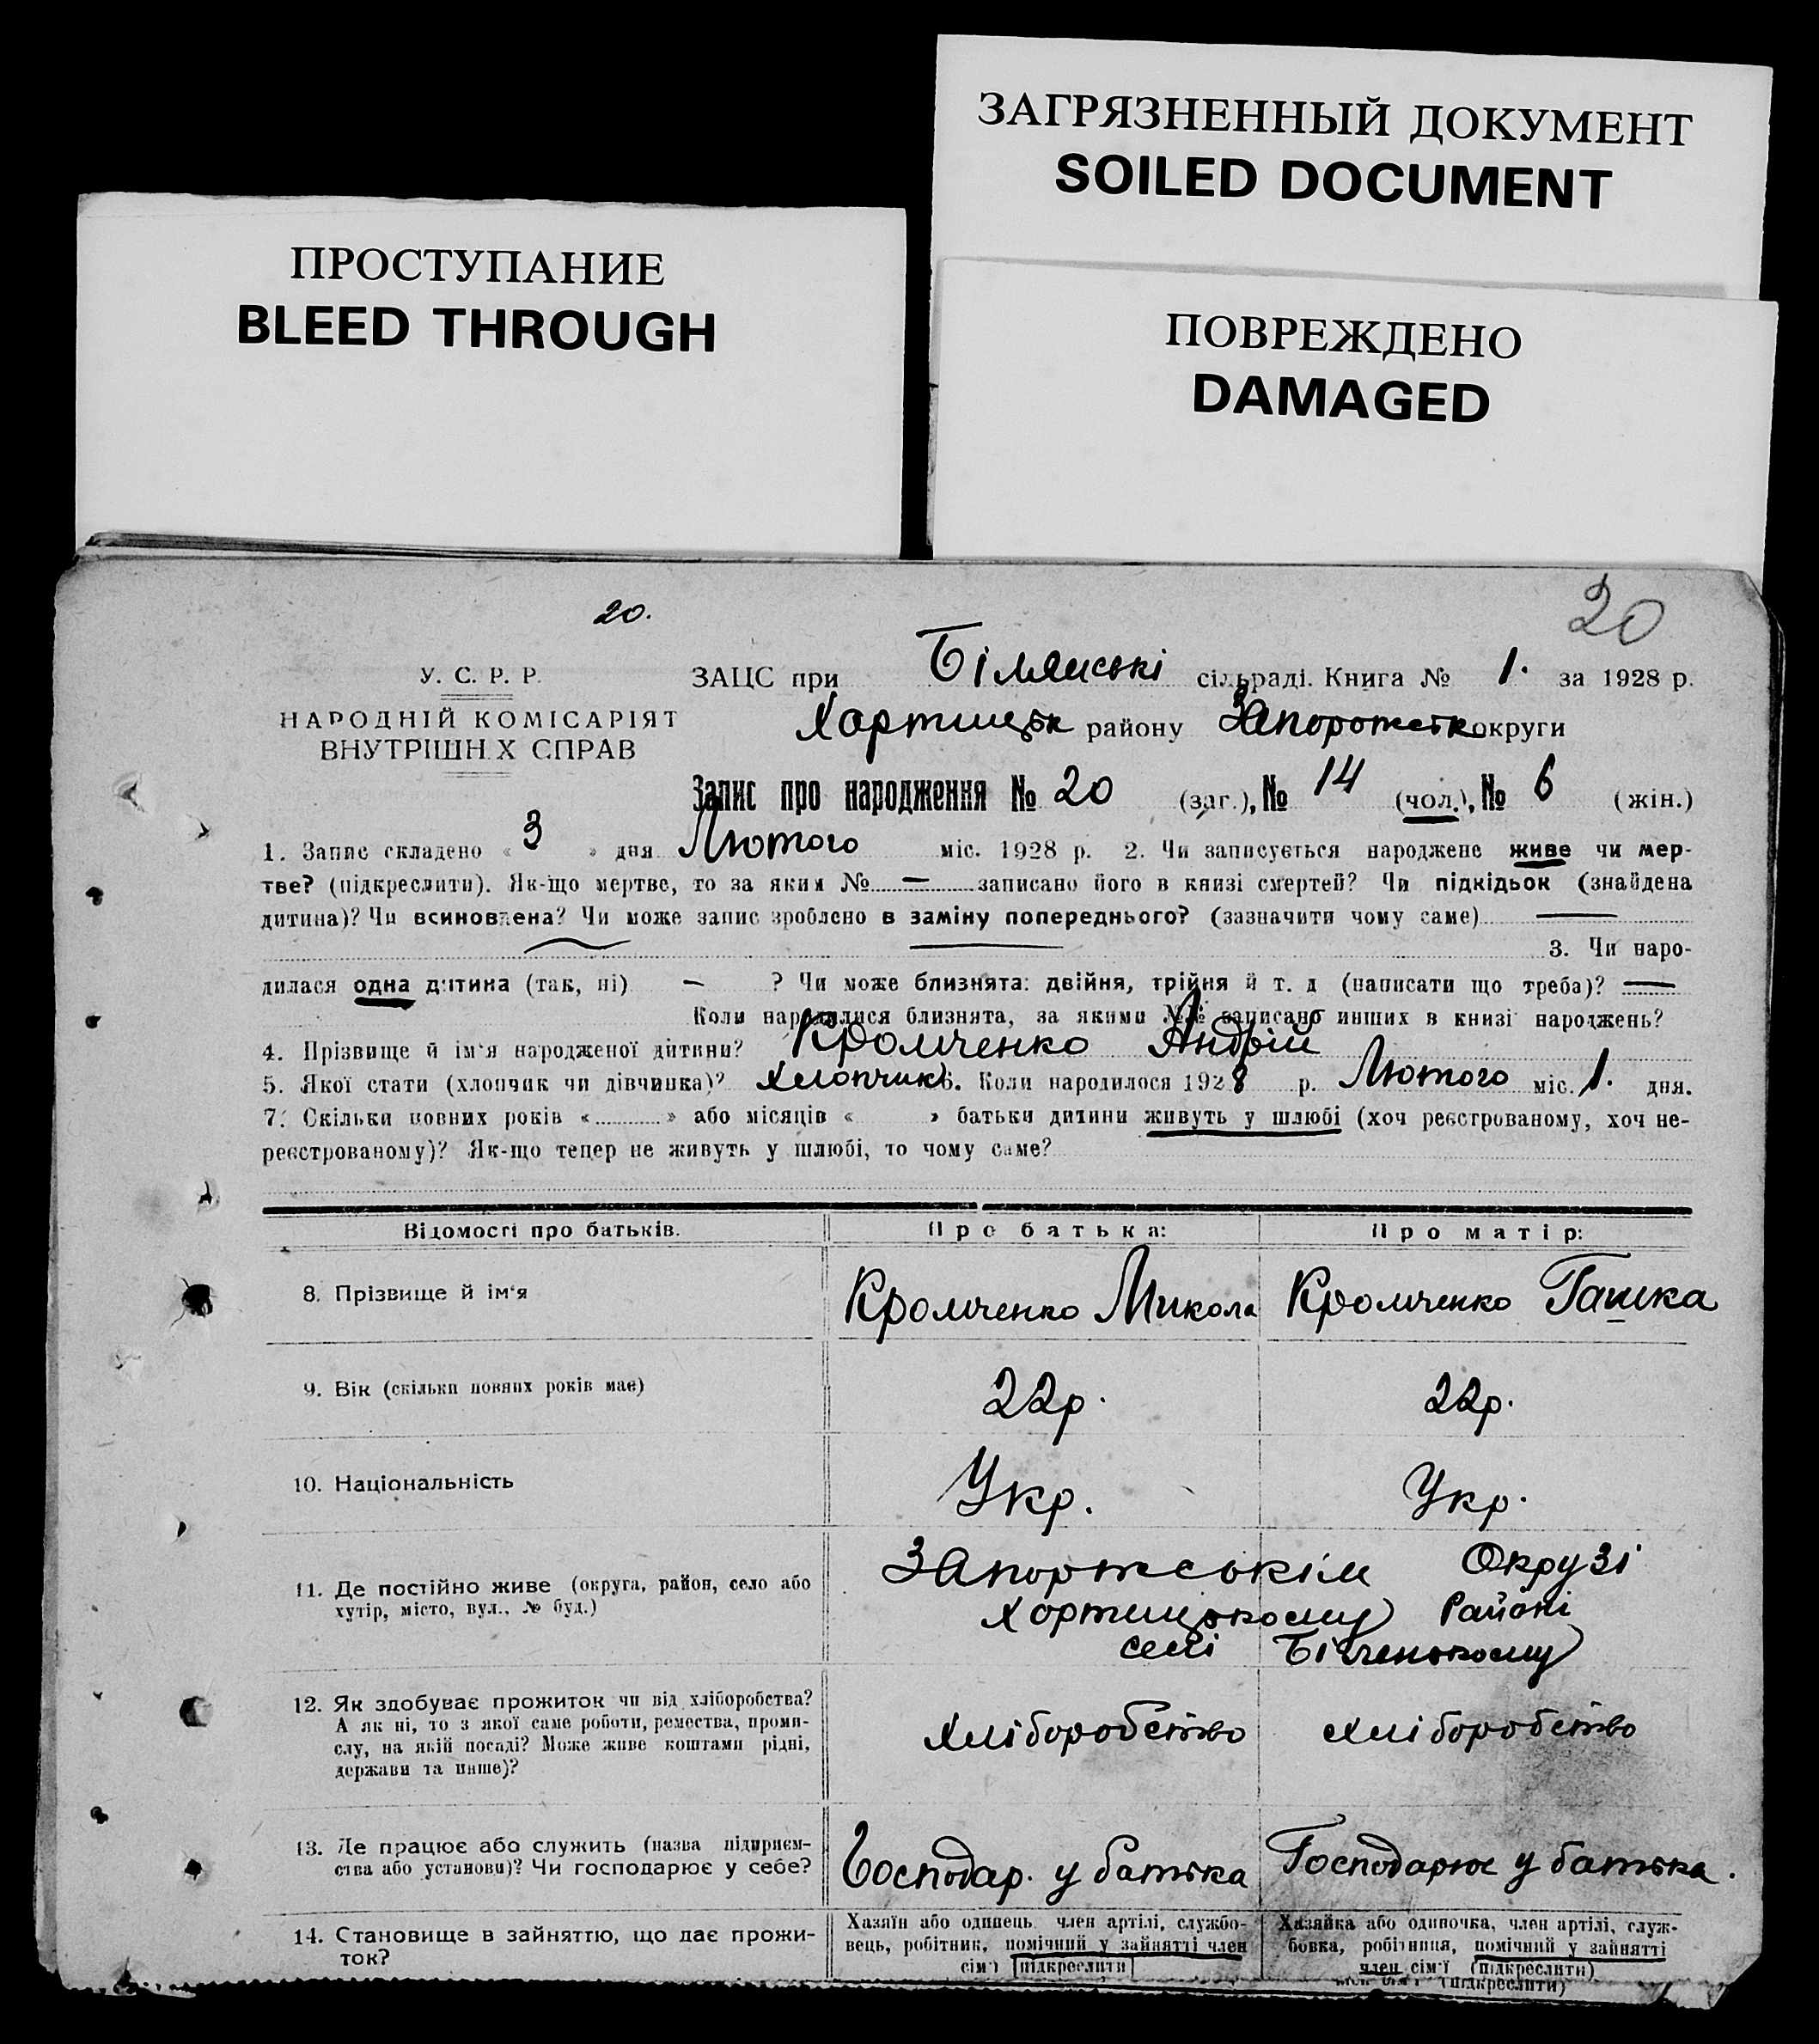 ЗАГРЯЗНЕННЫЙ ДОКУМЕНТ
SOILED DOCUMENT
ПРОСТУПАНИЕ
BLEED THROUGH
ПОВРЕЖДЕНО
DAMAGED
20.
20
У. С. Р. Р.
НАРОДНІЙ КОМІСАРІЯТ
ВНУТРІШН Х СПРАВ
ЗАЦС при сільраді. Книга № 1. за 1928 р.
Хортицьк району Запорожськ округи
Запис про народження № 20 (заг.), № 14 (чол.), № 6 (жін.)
1. Запис складено « 3 » дня Лютого міс. 1928 р. 2. Чи записується народжене живе чи мер-
тве? (підкреслити). Як-що мертве, то за яким № — записано його в книзі смертей? Чи підкідьок (знайдена
дитина)? Чи всиновлена? Чи може запис зроблено в заміну попереднього? (зазначити чому саме) —
3. Чи наро-
дилася одна дитина (так, ні) — ? Чи може близнята: двійня, трійня й т. д (написати що треба)? —
Коли народилися близнята, за якими №№ записано инших в книзі народжень?
4. Прізвище й ім'я народженої дитини? Кромченко Андрій
5. Якої стати (хлопчик чи дівчинка)? Хлопчик 6. Коли народилося 1928 р. Лютого міс. 1. дня.
7. Скільки повних років «...» або місяців « » батьки дитини живуть у шлюбі (хоч реєстрованому, хоч не-
реєстрованому)? Як-що тепер не живуть у шлюбі, то чому саме?
Відомості про батьків. Про батька: Про матір:
8. Прізвище й ім'я Кромченко Микола Кромченко Гашка
9. Вік (скільки повних років має) 22р. 22р.
10. Національність Укр. Укр.
11. Де постійно живе (округа, район, село або
хутір, місто, вул., № буд.)
Запоржським Окрузі
Хортицькому Районі
селі
12. Як здобуває прожиток чи від хліборобства?
А як ні, то з якої саме роботи, ремества, проми-
слу, на якій посаді? Може живе коштами рідні,
держави та инше)?
Хліборобство Хліборобство
13. Де працює або служить (назва підприєм-
ства або установи)? Чи господарює у себе?
Господар. у батька Господарює у батька.
14. Становище в зайняттю, що дає прожи-
ток?
Хазяїн або одинець член артілі, службо-
вець, робітник, помічний у зайнятті член
сім'ї (підкреслити)
Хазяйка або одиночка, член артілі, служ-
бовка, робітниця, помічний у зайнятті
член сім'ї (підкреслити)
(підкреслити)